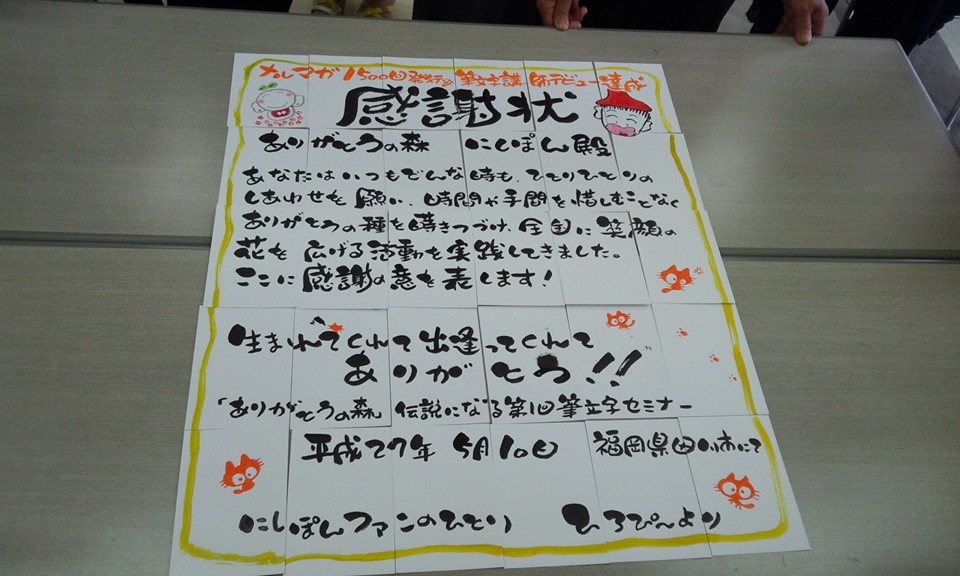 メルマガ1500回発行&筆文字講師デビュー達成
感謝状
ありがとうの森 にしぽん殿
あなたはいつもどんな時も、ひとりひとりの
しあわせを願い、時間や手間を惜しむことなく
ありがとうの種を蒔きつづけ、全国に笑顔の
花を広げる活動を実践してきました。
ここに感謝の意を表します!
生まれてくれて出逢ってくれて
ありがとう!!
「ありがとうの森 伝説になる第1回筆文字セミナー
平成27年 5月10日 福岡県田川市にて
にしぽんファンのひとり ひろぴんより